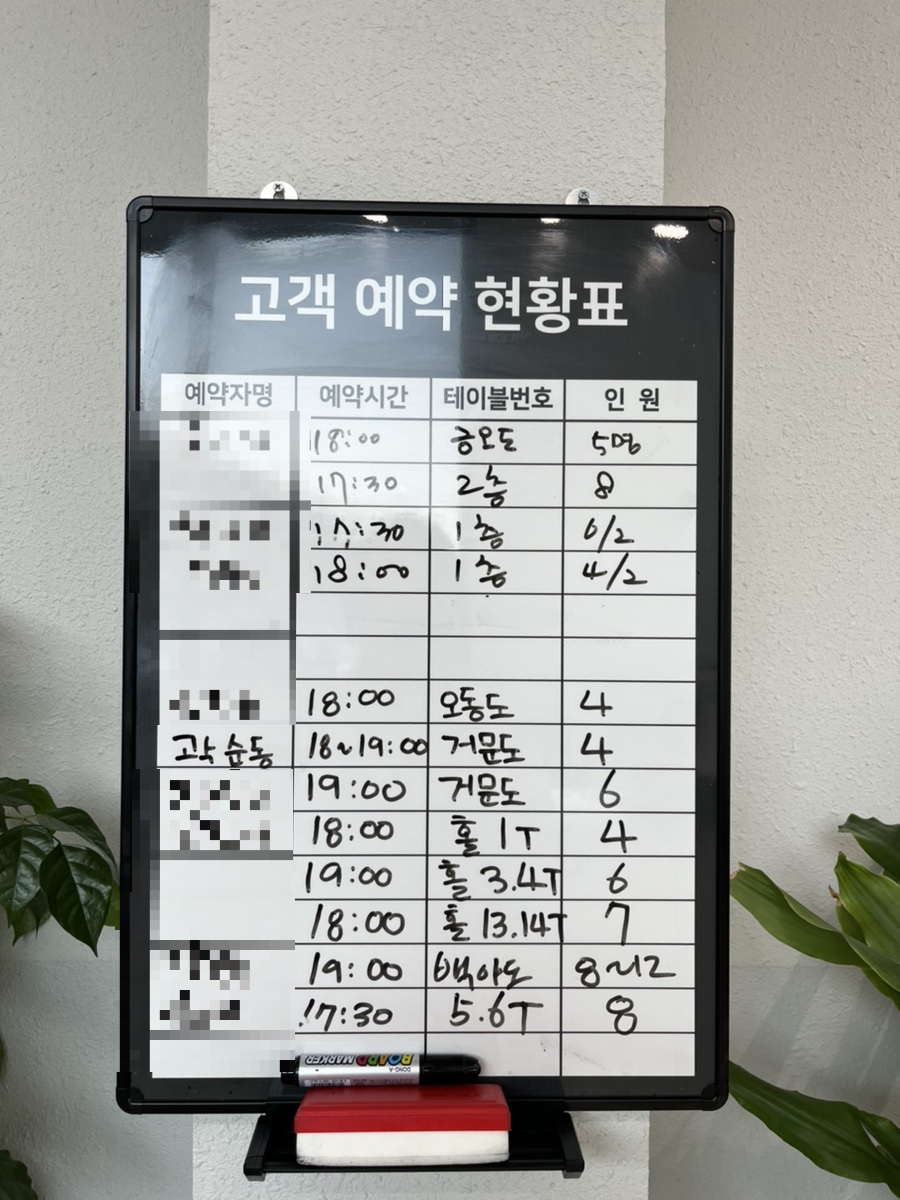 고객 예약 현황표
예약자명 예약시간 테이블번호 인 원
18:00 금오도 5명
17:30 2층 8
17:30 1층 6/2
18:00 1층 4/2
18:00 오동도 4
18~19:00 거문도 4
19:00 거문도 6
18:00 홀 1T 4
19:00 홀 3.4T 6
18:00 홀 13.14T 7
19:00 백야도 8~12
17:30 5.6T 8
DONG-A
BOARD MARKER